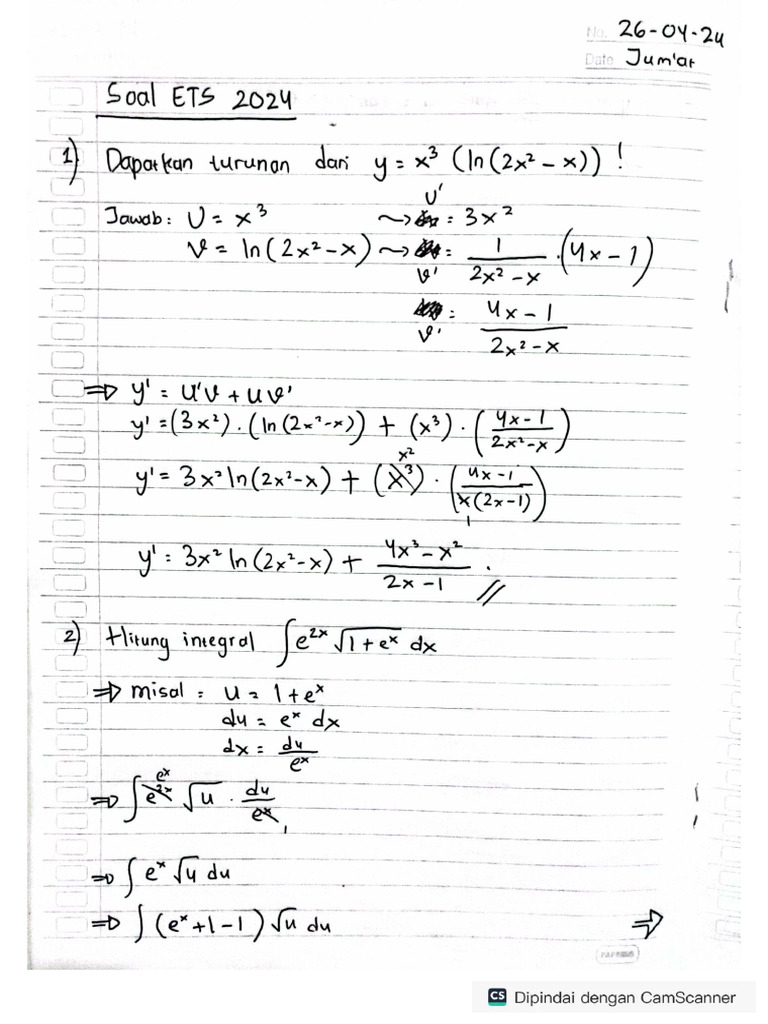 No. 26-04-24
Date Jum'at
Soal ETS 2024
1) Dapatkan turunan dari y = x³ (ln(2x² - x)) !
Jawab: U = x³ ⤳ U' = 3x²
V = ln(2x² - x) ⤳ V' = 1/(2x² - x) · (4x - 1)
V' = (4x - 1)/(2x² - x)
⇒ y' = U'V + UV'
y' = (3x²) · (ln(2x² - x)) + (x³) · ((4x - 1)/(2x² - x))
y' = 3x² ln(2x² - x) + (x³) x² · ((4x - 1)/(x(2x - 1))) 1
y' = 3x² ln(2x² - x) + (4x³ - x²)/(2x - 1) . //
2) Hitung integral ∫ e²ˣ √(1 + eˣ) dx
⇒ misal : u = 1 + eˣ
du = eˣ dx
dx = du/eˣ
⇒ ∫ e²ˣ eˣ √u · du/eˣ 1
⇒ ∫ eˣ √u du
⇒ ∫ (eˣ + 1 - 1) √u du ⇒
CS Dipindai dengan CamScanner